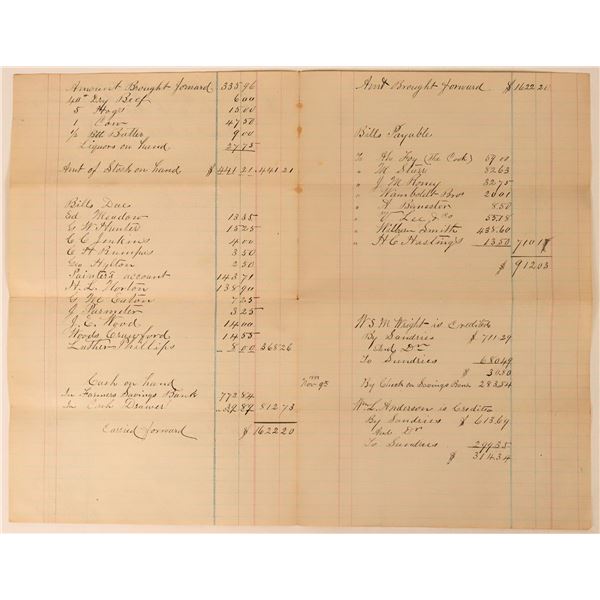 Amount Brought forward 335 96
40# Dry Beef 6 00
5 Hogs 15 00
1 Cow 47 50
1/2 Bbl Butter 9 00
Liquors on hand 27 75
Amt of Stock on hand $ 441 21 441 21
Bills Due
Ed Meadow 13 35
G W Hunter 15 25
C C Jenkins 4 00
C H Bumpas 3 50
Geo Hylton 2 50
Painters account 143 71
H. L. Horton 138 90
G Mc Eaton 7 25
J Parmeter 3 25
J. E. Wood 14 00
Woods Crawford 14 55
Luther Phillips 8 00 368 26
Cash on hand
In Farmers Savings Bank 772 84
In Cash Drawer 39 89 812 73
Carried forward $ 1622 20
Amt Brought forward $ 1622 20
Bills Payable
To Ho Foy (the Cook) 59 00
" M Sturr 82 63
" J M Horny 32 75
" Wamboldt Bros 20 01
" A Banister 8 50
" W Lee & Co 55 18
" William Smith 438 60
" H C Hastings 13 50 710 17
$ 912 03
W S M Wright is Credited
By Sundries $ 711.29
And Dr
To Sundries 680 49
$ 30 80
Nov 9th By Check on Savings Bank 283 54
Wm L. Anderson is Credited
By Sundries $ 613.69
And Dr
To Sundries 299 35
$ 314 34